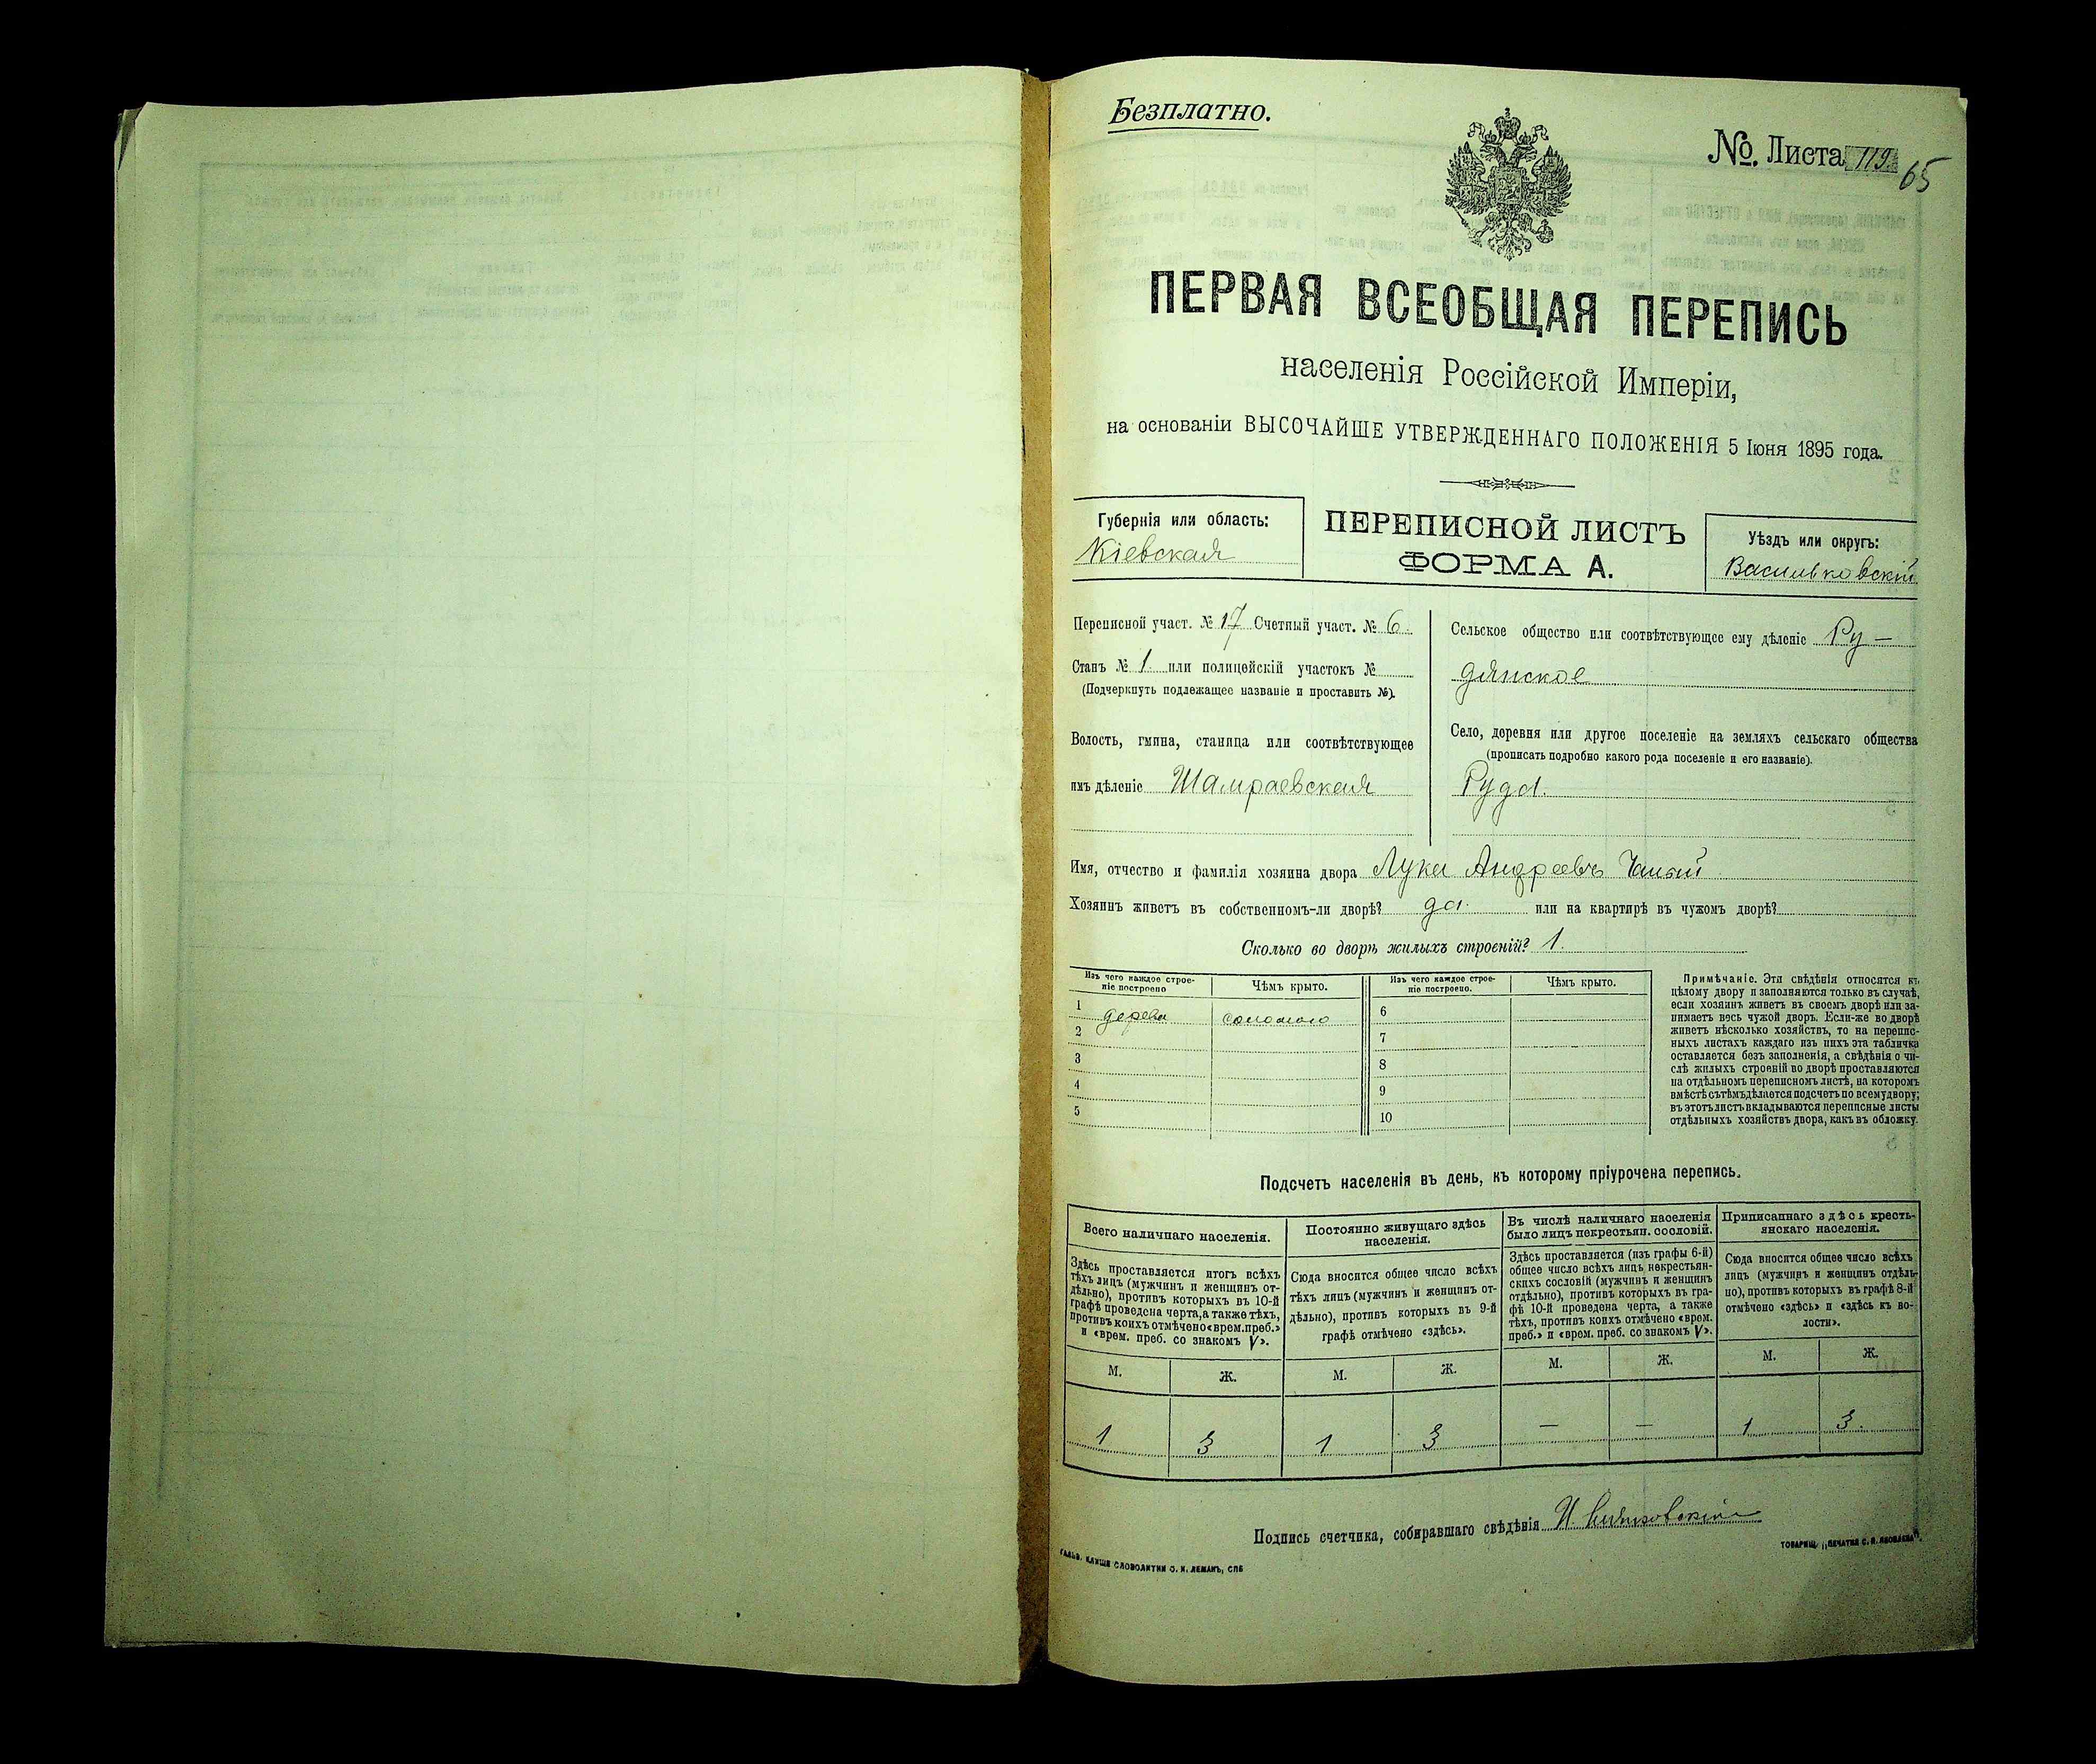 Безплатно.
№. Листа 119.
65
ПЕРВАЯ ВСЕОБЩАЯ ПЕРЕПИСЬ
населенія Россійской Имперіи,
на основаніи ВЫСОЧАЙШЕ УТВЕРЖДЕННАГО ПОЛОЖЕНІЯ 5 Іюня 1895 года.
Губернія или область:
Кіевская
ПЕРЕПИСНОЙ ЛИСТЪ
ФОРМА А.
Уѣздъ или округъ:
Васильковскій
Переписной участ. № 17 Счетный участ. № 6.
Станъ № 1. или полицейскій участокъ №
(Подчеркнуть подлежащее названіе и проставить №).
Волость, гмина, станица или соотвѣтствующее
имъ дѣленіе Шамраевская
Сельское общество или соотвѣтствующее ему дѣленіе Ру-
дянское
Село, деревня или другое поселеніе на земляхъ сельскаго общества
(прописать подробно какого рода поселеніе и его названіе).
Руда.
Имя, отчество и фамилія хозяина двора Лука Андреевъ
Хозяинъ живетъ въ собственномъ-ли дворѣ? да. или на квартирѣ въ чужомъ дворѣ?
Сколько во дворѣ жилыхъ строеній? 1.
Изъ чего каждое строе-
ніе построено
Чѣмъ крыто.
Изъ чего каждое строе-
ніе построено.
Чѣмъ крыто.
1 дерева соломою
2
3
4
5
6
7
8
9
10
Примѣчаніе. Эти свѣдѣнія относятся къ
цѣлому двору и заполняются только въ случаѣ,
если хозяинъ живетъ въ своемъ дворѣ или за-
нимаетъ весь чужой дворъ. Если-же во дворѣ
живетъ нѣсколько хозяйствъ, то на перепис-
ныхъ листахъ каждаго изъ нихъ эта табличка
оставляется безъ заполненія, а свѣдѣнія о чи-
слѣ жилыхъ строеній во дворѣ проставляются
на отдѣльномъ переписномъ листѣ, на которомъ
вмѣстѣ съ тѣмъ дѣлается подсчетъ по всему двору;
въ этотъ листъ вкладываются переписные листы
отдѣльныхъ хозяйствъ двора, какъ въ обложку.
Подсчетъ населенія въ день, къ которому пріурочена перепись.
Всего наличнаго населенія.
Здѣсь проставляется итогъ всѣхъ
тѣхъ лицъ (мужчинъ и женщинъ от-
дѣльно), противъ которыхъ въ 10-й
графѣ проведена черта, а также тѣхъ,
противъ коихъ отмѣчено «врем. преб.»
и «врем. преб. со знакомъ V».
Постоянно живущаго здѣсь
населенія.
Сюда вносится общее число всѣхъ
тѣхъ лицъ (мужчинъ и женщинъ от-
дѣльно), противъ которыхъ въ 9-й
графѣ отмѣчено «здѣсь».
Въ числѣ наличнаго населенія
было лицъ некрестьян. сословій.
Здѣсь проставляется (изъ графы 6-й)
общее число всѣхъ лицъ некрестьян-
скихъ сословій (мужчинъ и женщинъ
отдѣльно), противъ которыхъ въ гра-
фѣ 10-й проведена черта, а также
тѣхъ, противъ коихъ отмѣчено «врем.
преб.» и «врем. преб. со знакомъ V».
Приписаннаго здѣсь кресть-
янскаго населенія.
Сюда вносится общее число всѣхъ
лицъ (мужчинъ и женщинъ отдѣль-
но), противъ которыхъ въ графѣ 8-й
отмѣчено «здѣсь» и «здѣсь къ во-
лости».
М. Ж. М. Ж. М. Ж. М. Ж.
1 3 1 3 — — 1 3.
Подпись счетчика, собиравшаго свѣдѣнія И.
ГАЛЬВ. КЛИШЕ СЛОВОЛИТНИ О. И. ЛЕМАНЪ, СПБ
ТОВАРИЩ. „ПЕЧАТНЯ С. П. ЯКОВЛЕВА".